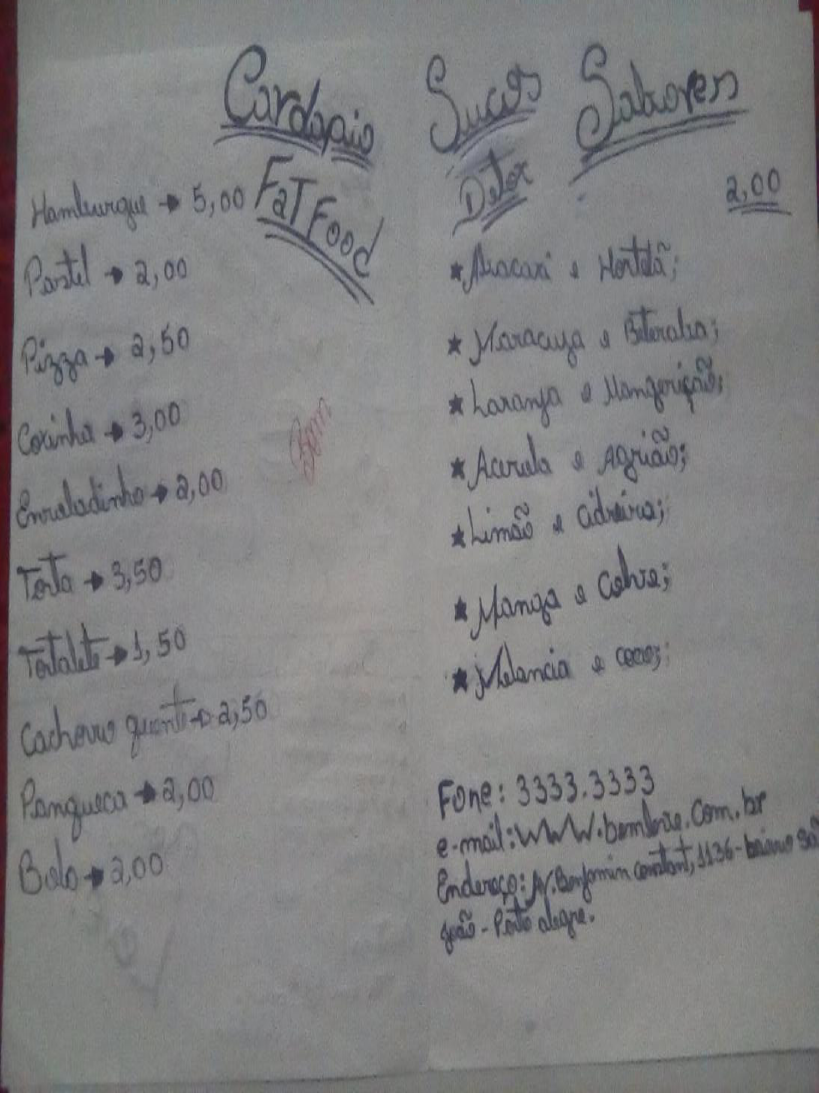 Cardapio
FaT Food
Hamburgue → 5,00
Pastel → 2,00
Pizza → 2,50
Coxinha → 3,00
Enroladinho → 2,00
Torta → 3,50
Tortalete → 1,50
Cachorro quente → 2,50
Panqueca → 2,00
Bolo → 2,00
Bom
Sucos Sabores
Detox 2,00
★ Abacaxi e Hortelã;
★ Maracuja e Beteraba;
★ Laranja e Mangericão;
★ Acerola e Agrião;
★ Limão e cidreira;
★ Manga e Cohve;
★ Melancia e coco;
Fone: 3333.3333
e-mail: WWW. .Com.br
Endereço: Av. Benjamin constant, 1136 - bairro São
joão - Pôrto alegre.